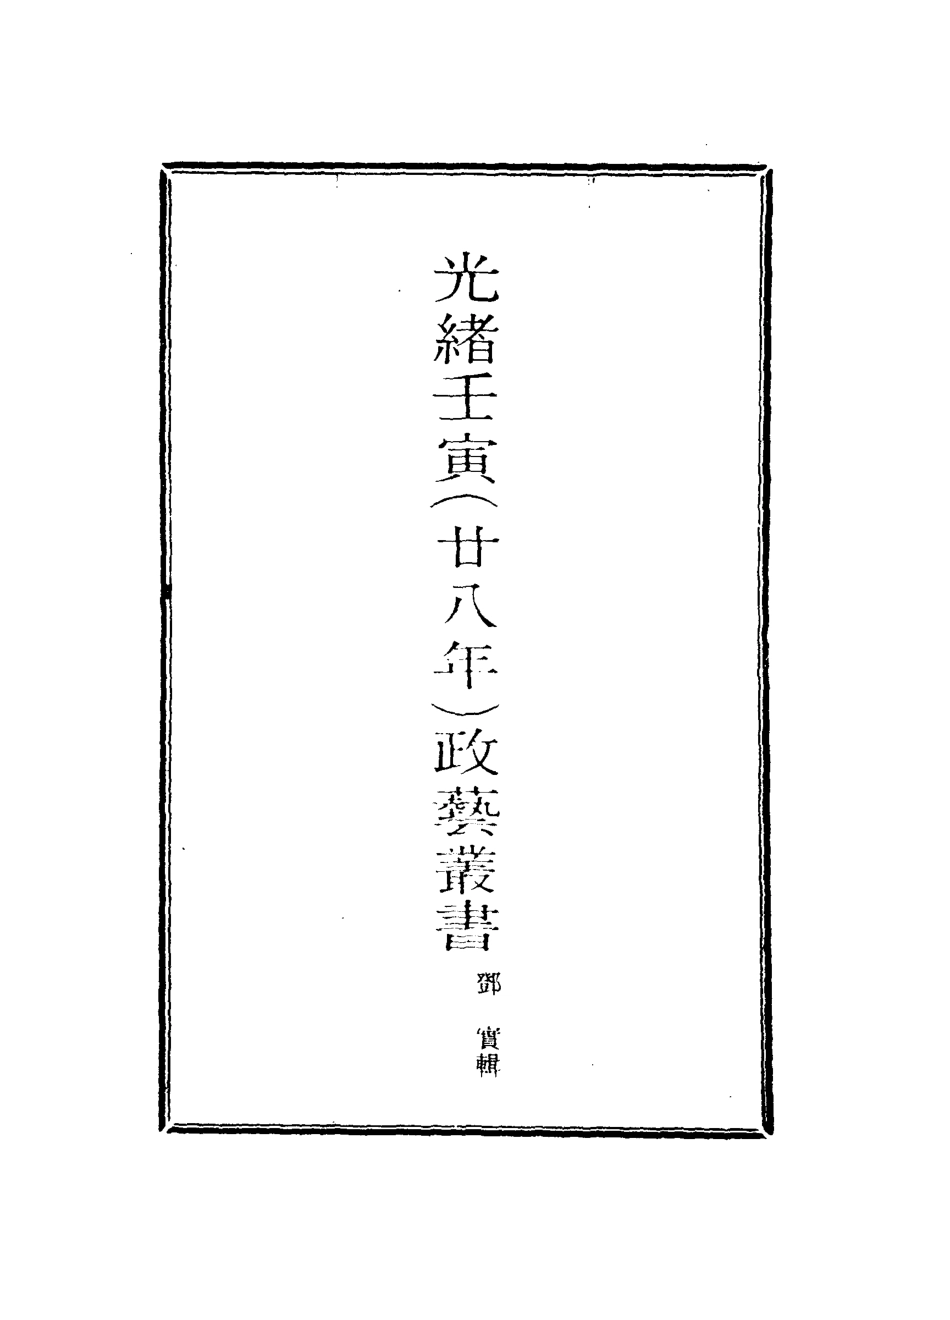 光緒壬寅（廿八年）政藝叢書
鄧 實輯